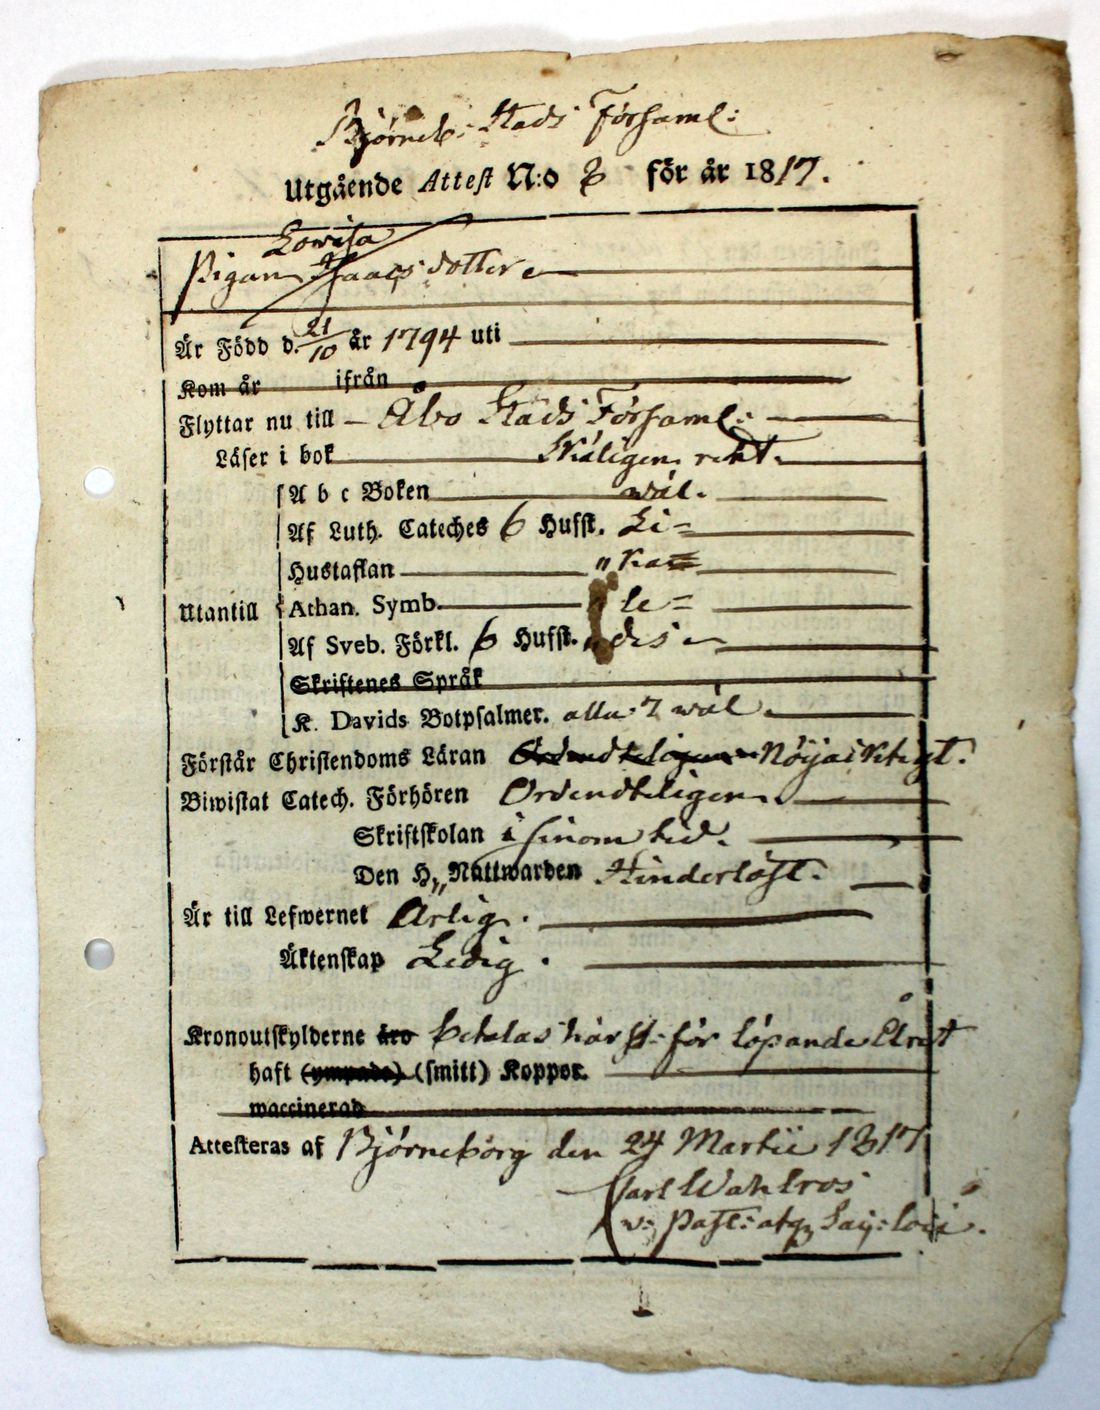 Björneb: Stads Församl:
Utgående Attest N:o 8 för år 1817.
Lowisa
Pigan Isaacsdotter
Är Född d. 21/10 år 1794 uti
Kom år ifrån
Flyttar nu till Åbo Stads Församl:
Läser i bok Skäligen rent.
A b c Boken wäl.
Af Luth. Cateches 6 Hufst. Li=
Hustaflan "ka=
Utantill Athan. Symb. " le=
Af Sveb. Förkl. 6 Hufst. des
Skriftenes Språk
K. Davids Botpsalmer. alla 7 wäl.
Förstår Christendoms Läran Ordendteligen Nöijaktigt.
Biwistat Catech. Förhören Ordendteligen
Skriftskolan i sinom tid.
Den H. Nattwarden Hinderlöst.
Är till Lefwernet Ärlig.
Äktenskap Ledig.
Kronoutskylderne äro betalas här st: för löpande Året
haft (ympade) (smitt) Koppor.
waccinerad
Attesteras af Björneborg den 24 Martii 1817
Carl Wahlros
v: Past: atq Sac: loci.